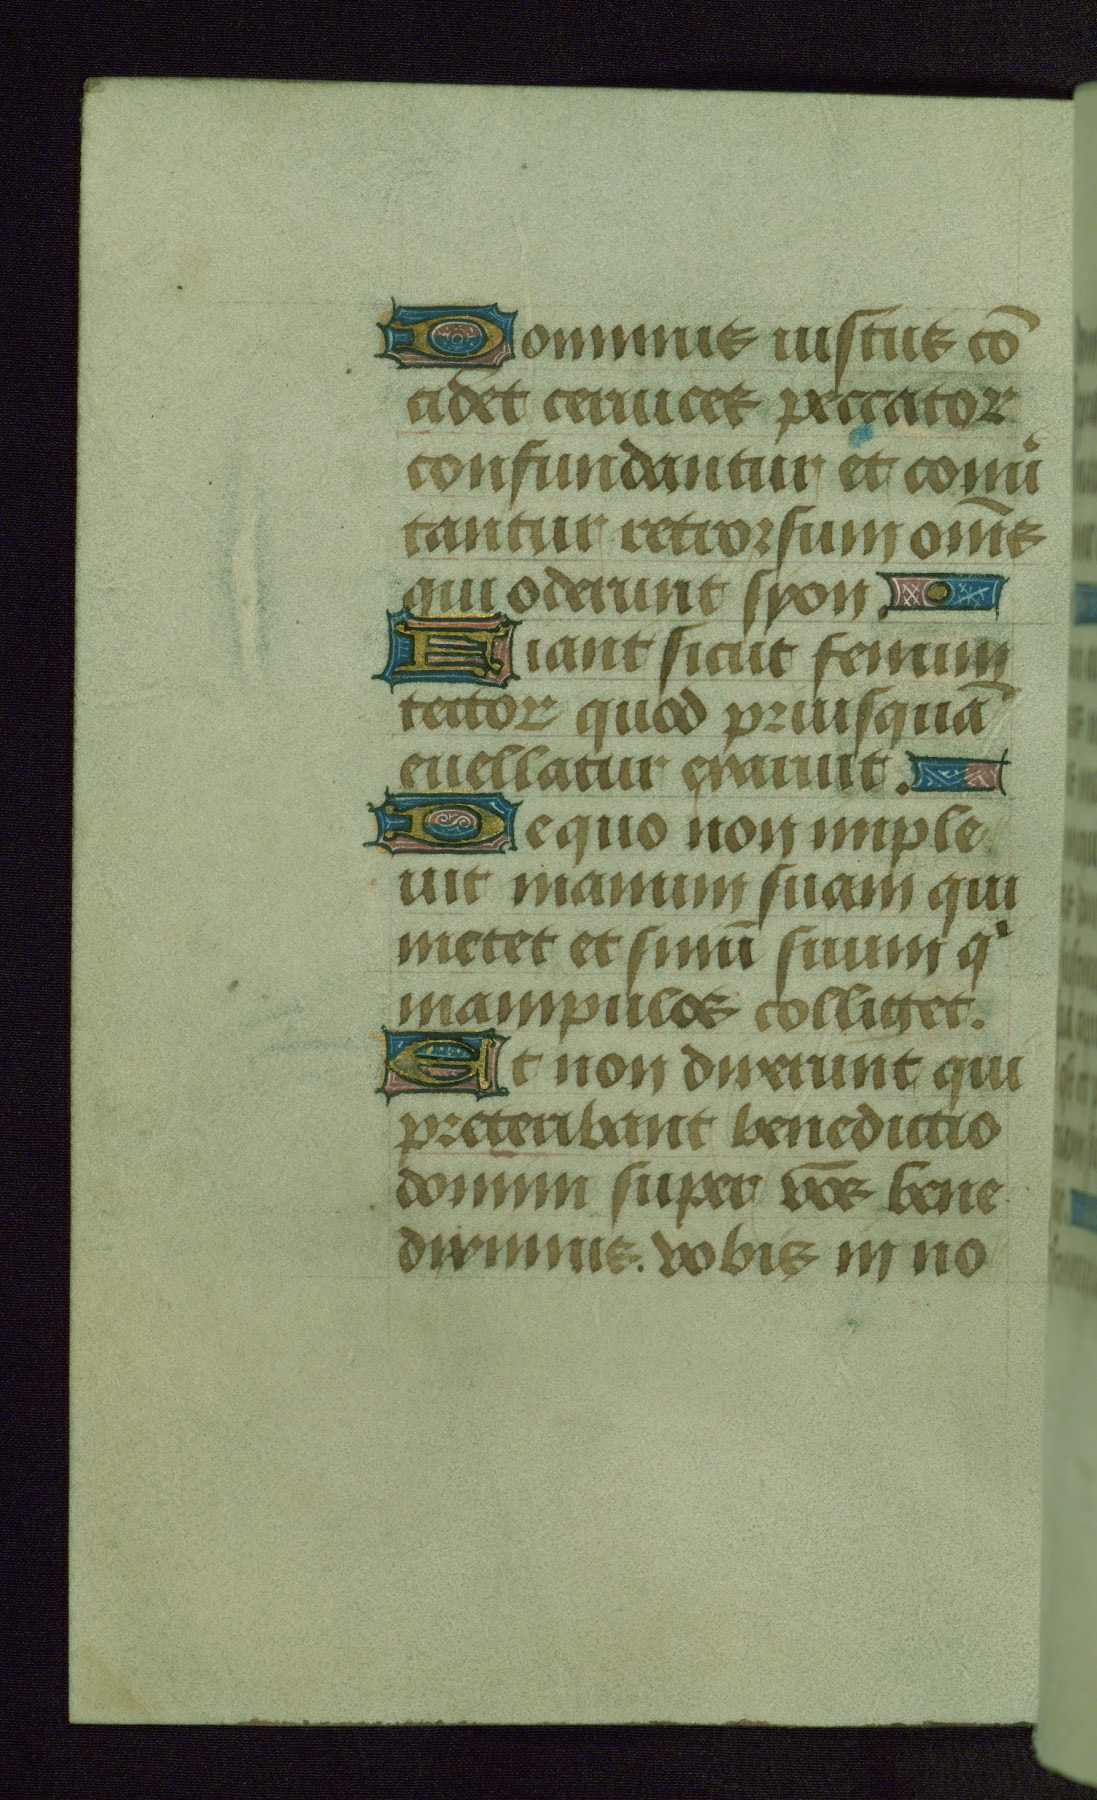 Dominus iustus cō
cidet ceruices peccator
confundantur et comū
tantur retrorsum om̄s
qui oderunt syon.
Fiant sicut fenum
tector quod priusquā
euellatur exaruit.
De quo non imple
uit manum suam qui
metet et sinū suum qͥ
manipulos colliget.
Et non dixerunt qui
preteribant benedictio
domini super vōs bene
diximus. vobis in no